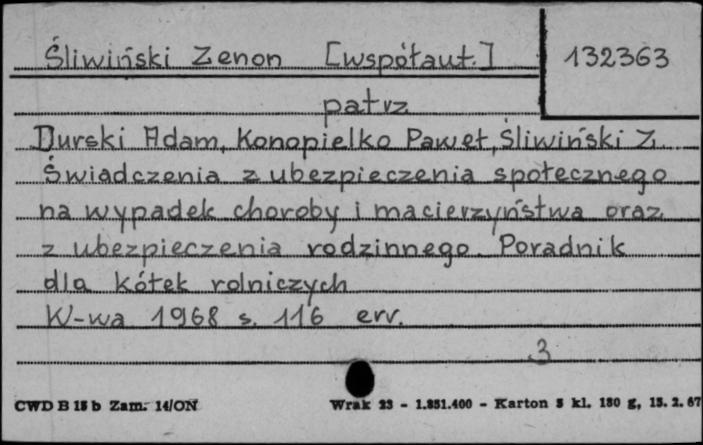 Śliwiński Zenon [współaut.] 132363
patrz
Durski Adam, Konopielko Paweł, Śliwiński Z.
Świadczenia z ubezpieczenia społecznego
na wypadek choroby i macierzyństwa oraz
z ubezpieczenia rodzinnego. Poradnik
dla kółek rolniczych
W-wa 1968 s. 116 err.
3
CWD B 15 b Zam. 14/ON Wrak 23 - 1.851.400 - Karton 5 kl. 180 g, 15. 2. 67